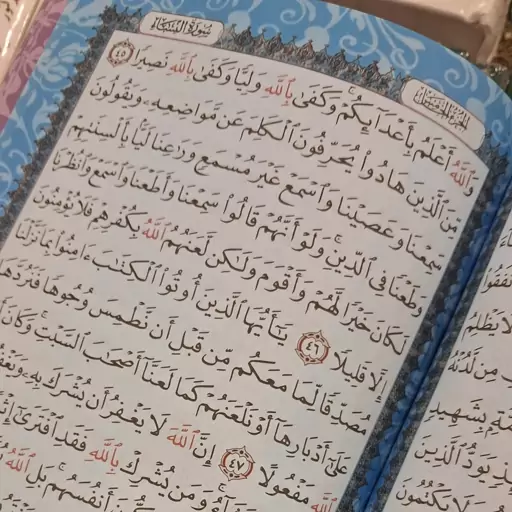 سُورَةُ النِّسَاءِ
الجُزْءُ الخَامِسُ
وَٱللَّهُ أَعْلَمُ بِأَعْدَآئِكُمْ ۚ وَكَفَىٰ بِٱللَّهِ وَلِيًّا وَكَفَىٰ بِٱللَّهِ نَصِيرًا ٤٥
مِّنَ ٱلَّذِينَ هَادُوا۟ يُحَرِّفُونَ ٱلْكَلِمَ عَن مَّوَاضِعِهِۦ وَيَقُولُونَ
سَمِعْنَا وَعَصَيْنَا وَٱسْمَعْ غَيْرَ مُسْمَعٍ وَرَٰعِنَا لَيًّۢا بِأَلْسِنَتِهِمْ
وَطَعْنًا فِى ٱلدِّينِ ۚ وَلَوْ أَنَّهُمْ قَالُوا۟ سَمِعْنَا وَأَطَعْنَا وَٱسْمَعْ وَٱنظُرْنَا
لَكَانَ خَيْرًا لَّهُمْ وَأَقْوَمَ وَلَٰكِن لَّعَنَهُمُ ٱللَّهُ بِكُفْرِهِمْ فَلَا يُؤْمِنُونَ
إِلَّا قَلِيلًا ٤٦ يَٰٓأَيُّهَا ٱلَّذِينَ أُوتُوا۟ ٱلْكِتَٰبَ ءَامِنُوا۟ بِمَا نَزَّلْنَا
مُصَدِّقًا لِّمَا مَعَكُم مِّن قَبْلِ أَن نَّطْمِسَ وُجُوهًا فَنَرُدَّهَا
عَلَىٰٓ أَدْبَارِهَآ أَوْ نَلْعَنَهُمْ كَمَا لَعَنَّآ أَصْحَٰبَ ٱلسَّبْتِ ۚ وَكَانَ
ٱللَّهِ مَفْعُولًا ٤٧ إِنَّ ٱللَّهَ لَا يَغْفِرُ أَن يُشْرَكَ بِهِۦ وَيَغْفِرُ
وَمَن يُشْرِكْ بِٱللَّهِ فَقَدِ ٱفْتَرَىٰٓ
أَنفُسَهُم ۚ بَلِ ٱللَّهُ
يُظْلَمُ
مِن لَّدُنْهُ
بِشَهِيدٍ
يَوَدُّ ٱلَّذِينَ
وَلَا يَكْتُمُونَ